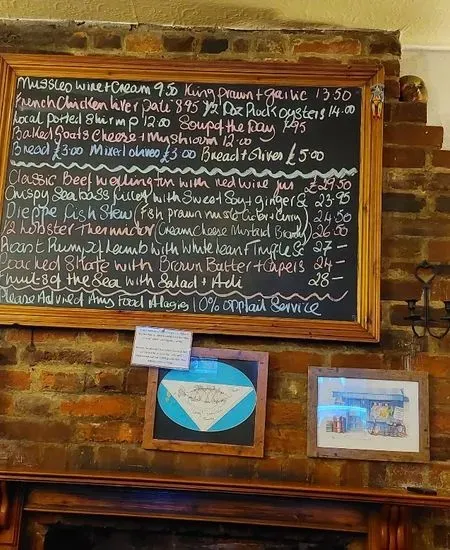 Mussles wine + Cream 9.50 King prawn + garlic 13.50
French Chicken liver Pate 8.95 1/2 Doz Rock oysters 14.00
Local potted Shrimp 12.00 Soup of the Day 7.95
Baked Goats Cheese + Mushroom 12.00
Bread £3.00 Mixed olives £3.00 Bread + Olives £5.00
Classic Beef wellington with red wine jus £29.50
Crispy Seabass fillet with Sweet Sour + ginger S 23.95
Dieppe Fish Stew (fish prawn mussles cider + curry) 24.50
1/2 Lobster Thermidor (Cream Cheese Mustard Brandy) 26.50
Roast Rump of Lamb with White bean + Truffle S 27 -
Poached Skate with Brown Butter + Capers 24 -
Fruits of the Sea with Salad + Aoli 28 -
Please Advice of Any Food Alagies 10% optail Service